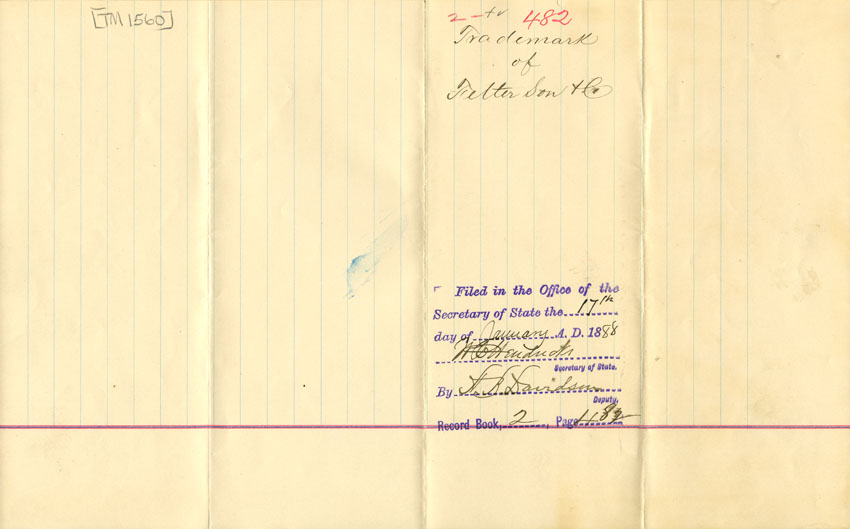 [TM 1560]
2 - tr 482
Trademark
of
Fetter Son & Co
Filed in the Office of the
Secretary of State the 17th
day of January A. D. 1888
W C Hendricks
Secretary of State.
By A B Davidson
Deputy,
Record Book, 2, Page 482